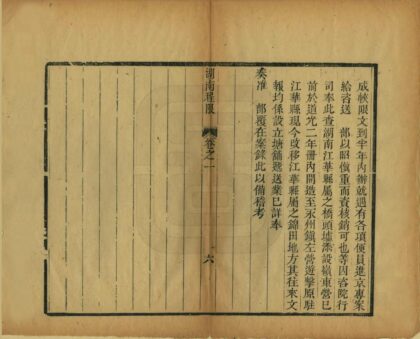 成帙限文到半年內辦就遇有各項便員進京專案
給咨送　部以昭愼重而資核銷可也等因咨院行
司奉此查湖南江華縣屬之橋頭墟添設嶺東營已
前於道光二年冊內開造至永州鎮左營遊擊原駐
江華縣現今改移江華縣屬之錦田地方其往來文
報均係設立塘鋪遞送業已詳奉
奏准　部覆在案錄此以備稽考
湖南程限
卷之一
六